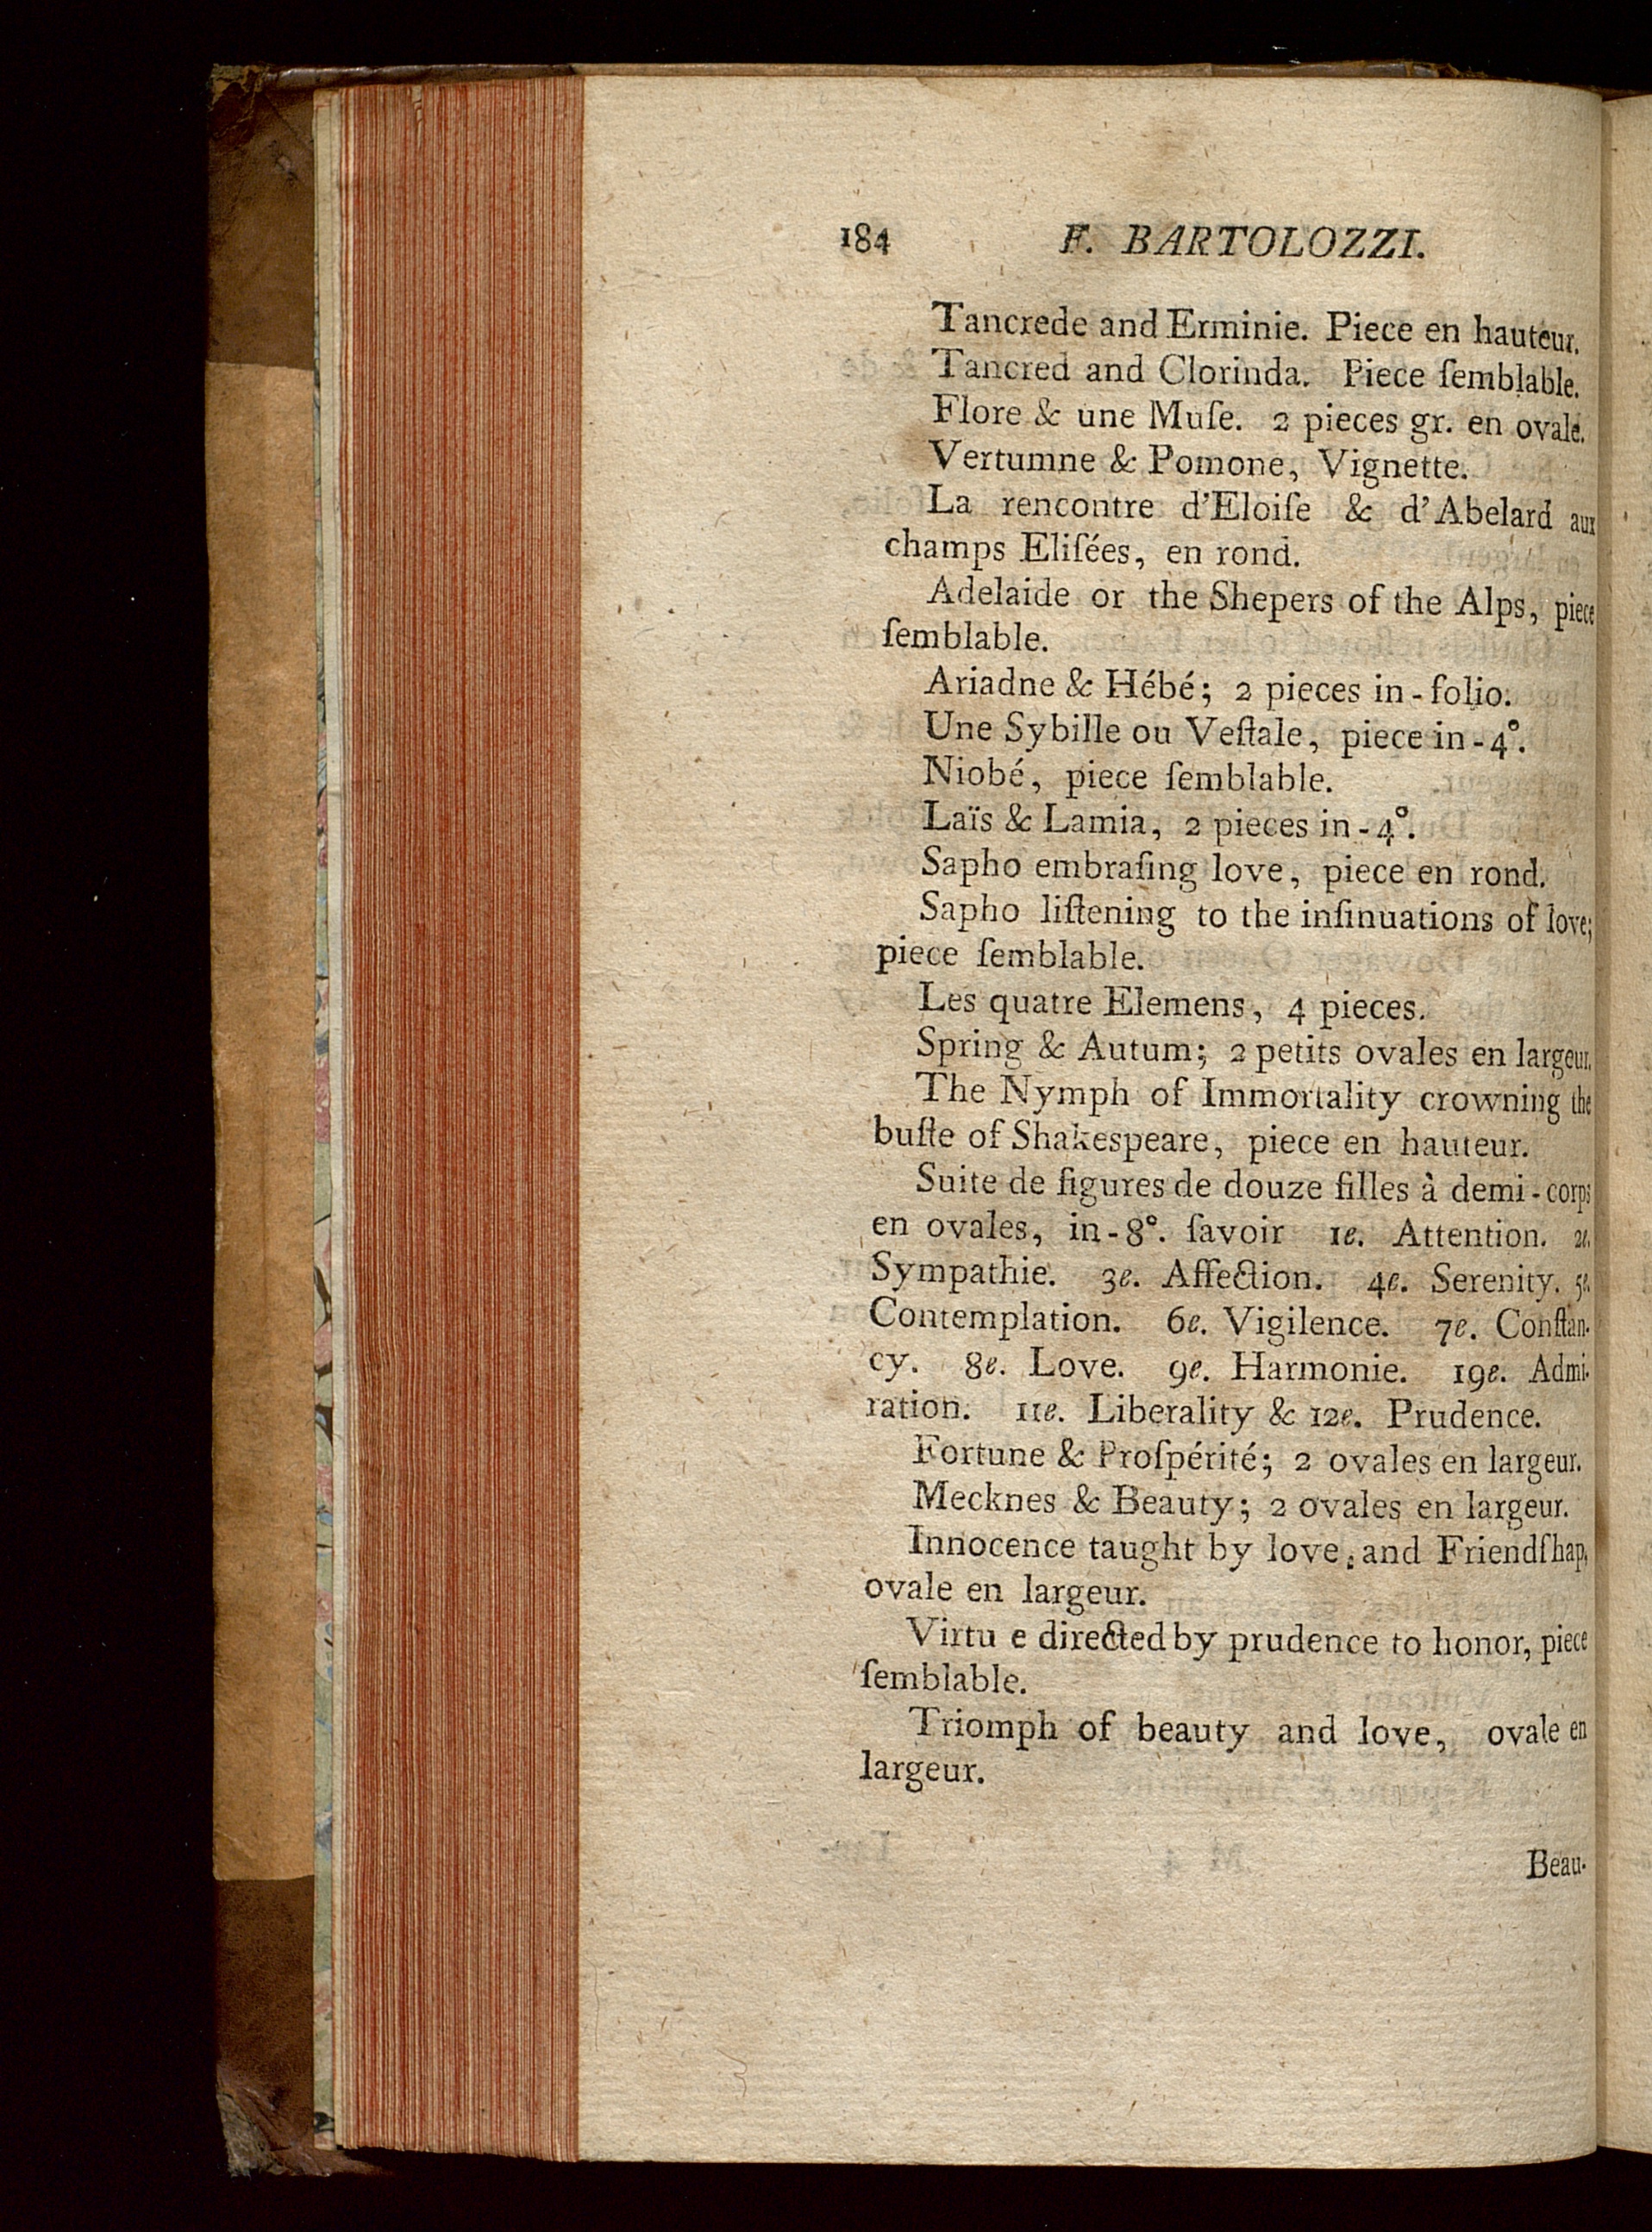 184 F. BARTOLOZZI.
Tancrede and Erminie. Piece en hauteur.
Tancred and Clorinda. Piece ſemblable.
Flore & une Muſe. 2 pieces gr. en ovale.
Vertumne & Pomone, Vignette.
La rencontre d'Eloiſe & d'Abelard aux
champs Eliſées, en rond.
Adelaide or the Shepers of the Alps, piece
ſemblable.
Ariadne & Hébé; 2 pieces in-folio.
Une Sybille ou Veſtale, piece in-4°.
Niobé, piece ſemblable.
Laïs & Lamia, 2 pieces in-4°.
Sapho embraſing love, piece en rond.
Sapho liſtening to the inſinuations of love;
piece ſemblable.
Les quatre Elemens, 4 pieces.
Spring & Autum; 2 petits ovales en largeur.
The Nymph of Immortality crowning the
buſte of Shakespeare, piece en hauteur.
Suite de figures de douze filles à demi-corps
en ovales, in-8°. ſavoir 1e. Attention. 2e.
Sympathie. 3e. Affection. 4e. Serenity. 5e.
Contemplation. 6e. Vigilence. 7e. Conſtan-
cy. 8e. Love. 9e. Harmonie. 19e. Admi-
ration. 11e. Liberality & 12e. Prudence.
Fortune & Proſpérité; 2 ovales en largeur.
Mecknes & Beauty; 2 ovales en largeur.
Innocence taught by love; and Friendſhap,
ovale en largeur.
Virtu e directed by prudence to honor, piece
ſemblable.
Triomph of beauty and love, ovale en
largeur.
Beau-